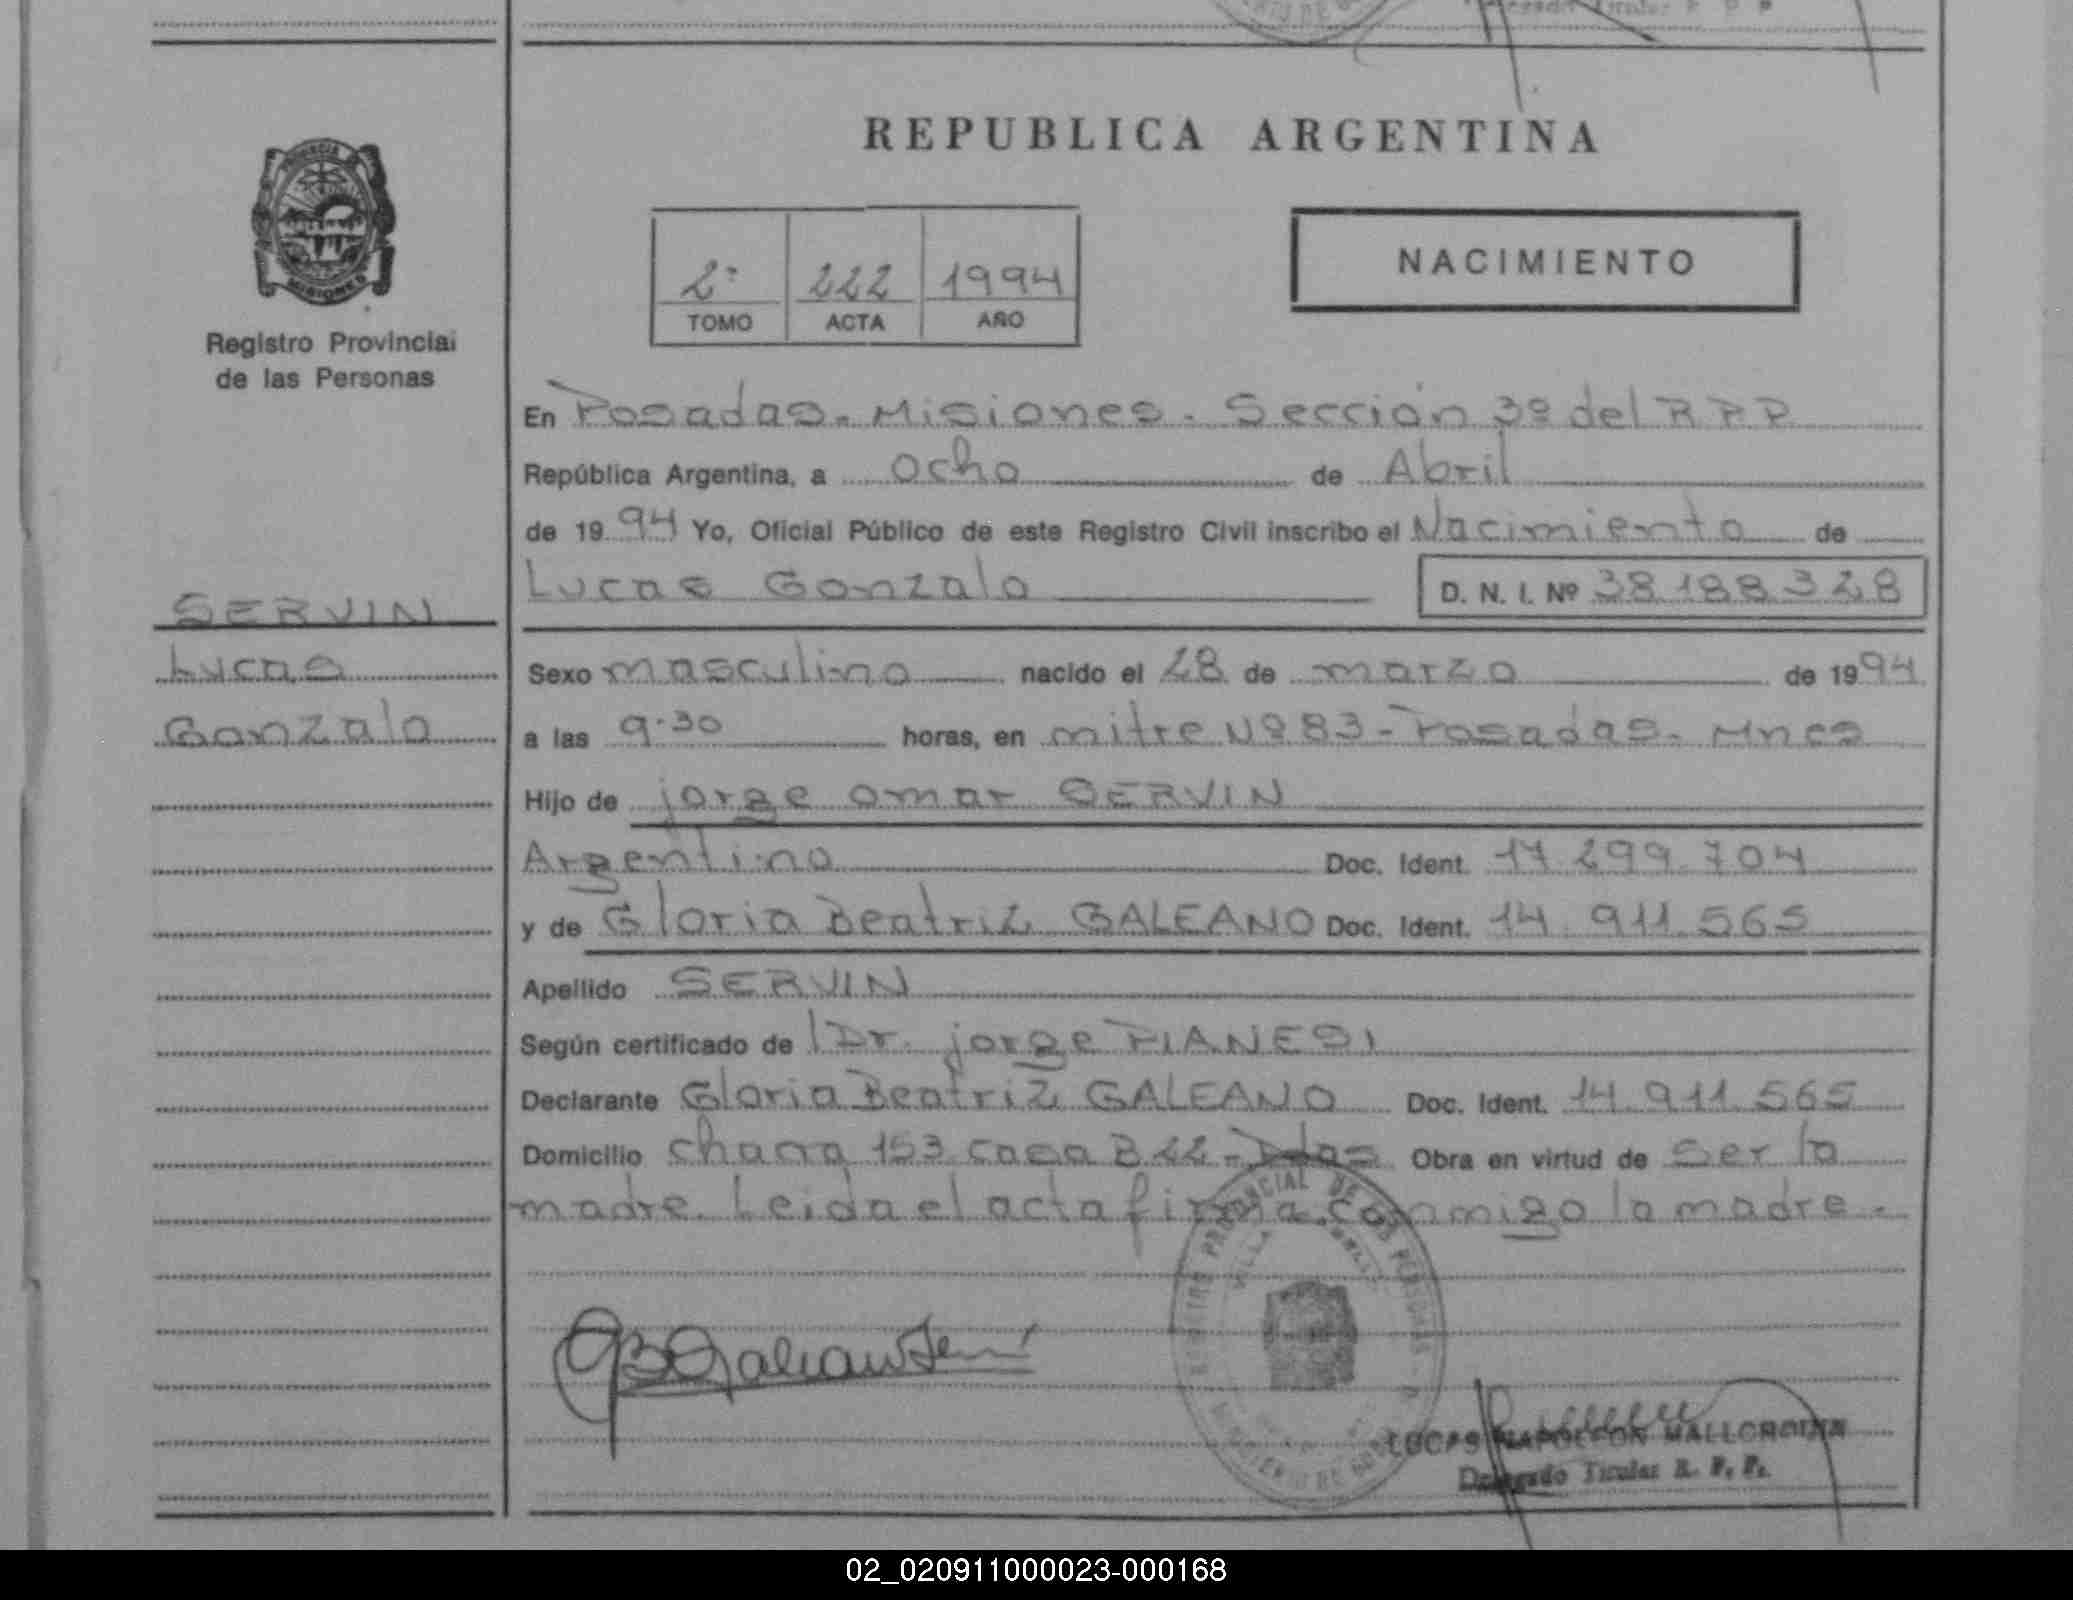 REPUBLICA ARGENTINA
PROVINCIA DE
MISIONES
Registro Provincial
de las Personas
2º 222 1994
TOMO ACTA AÑO
NACIMIENTO
En Posadas - Misiones - Sección 3º del R P P
República Argentina, a ocho de Abril
de 1994 Yo, Oficial Público de este Registro Civil inscribo el Nacimiento de
Lucas Gonzalo D. N. I. Nº 38 188 328
SERVIN
Lucas
Gonzalo
Sexo masculino nacido el 28 de marzo de 1994
a las 9.30 horas, en mitre Nº 83 - Posadas - Mnes
Hijo de jorge omar SERVIN
Argentino Doc. Ident. 17.299.704
y de Gloria Beatriz GALEANO Doc. Ident. 14.911.565
Apellido SERVIN
Según certificado de l Dr. jorge PIANESI
Declarante Gloria Beatriz GALEANO Doc. Ident. 14.911.565
Domicilio chacra 153 casa B 22 - Pdas Obra en virtud de ser la
madre. Leida el acta firma conmigo la madre.-
REGISTRO PROVINCIAL DE LAS PERSONAS
VILLA
MINISTERIO DE GOB
LUCAS NAPOLEON
Delegado Titular R. P. P.
02_020911000023-000168